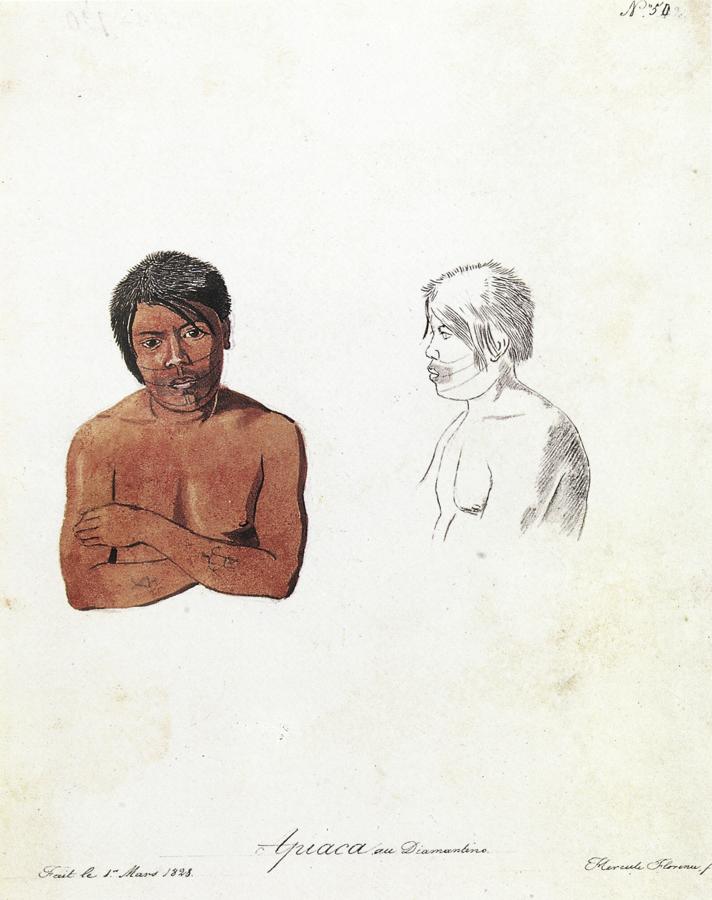 N.º 54
Apiaca au Diamantino.
Fait le 1er Mars 1828.
Hercule Florence f